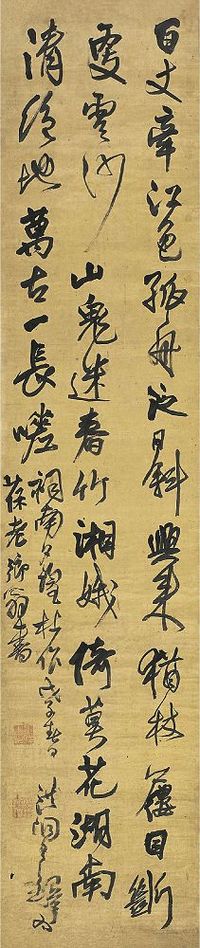 百丈牽江色孤舟泛日斜興來猶杖屨目斷
更雲沙山鬼迷春竹湘娥倚莫花湖南
清絕地萬古一長嗟祠南夕望杜作戊子春日洪洞王鐸為
葆老鄉翁書